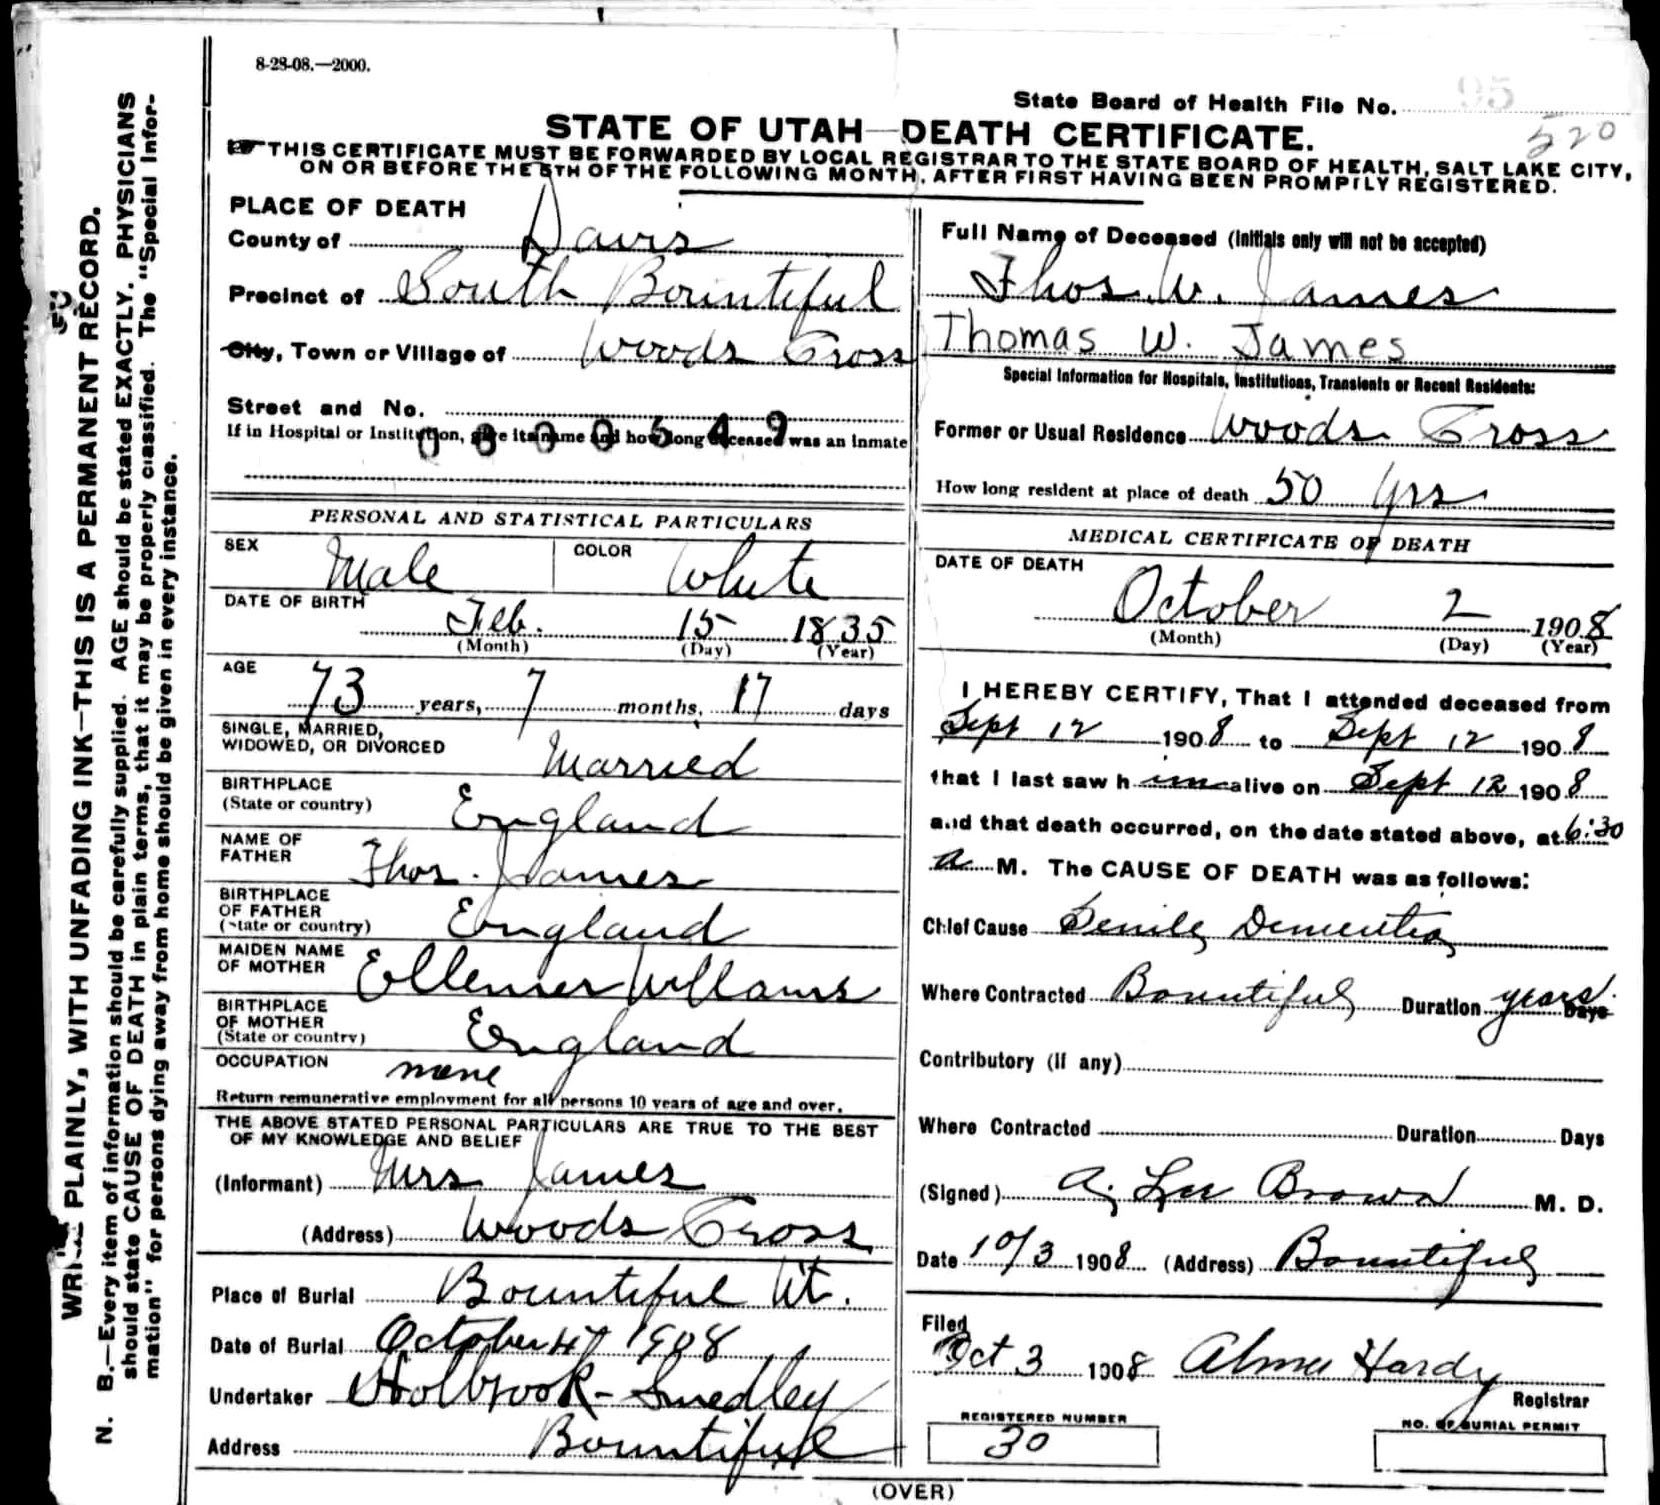 8-28-08.—2000.
State Board of Health File No. 95
520
STATE OF UTAH—DEATH CERTIFICATE.
THIS CERTIFICATE MUST BE FORWARDED BY LOCAL REGISTRAR TO THE STATE BOARD OF HEALTH, SALT LAKE CITY,
ON OR BEFORE THE 5TH OF THE FOLLOWING MONTH, AFTER FIRST HAVING BEEN PROMPTLY REGISTERED.
PLACE OF DEATH
County of Davis
Precinct of South Bountiful
City, Town or Village of Woods Cross
Street and No.
If in Hospital or Institution, give its name and how long deceased was an inmate
PERSONAL AND STATISTICAL PARTICULARS
SEX Male COLOR White
DATE OF BIRTH Feb. 15 1835
(Month) (Day) (Year)
AGE 73 years, 7 months, 17 days
SINGLE, MARRIED,
WIDOWED, OR DIVORCED Married
BIRTHPLACE
(State or country) England
NAME OF
FATHER Thos. James
BIRTHPLACE
OF FATHER
(State or country) England
MAIDEN NAME
OF MOTHER
BIRTHPLACE
OF MOTHER
(State or country) England
OCCUPATION none
Return remunerative employment for all persons 10 years of age and over.
THE ABOVE STATED PERSONAL PARTICULARS ARE TRUE TO THE BEST
OF MY KNOWLEDGE AND BELIEF
(Informant) Mrs James
(Address) Woods Cross
Place of Burial Bountiful Ut.
Date of Burial October 4 1908
Undertaker Holbrook-Smedley
Address Bountiful
Full Name of Deceased (Initials only will not be accepted)
Thos. W. James
Thomas W. James
Special Information for Hospitals, Institutions, Transients or Recent Residents:
Former or Usual Residence Woods Cross
How long resident at place of death 50 yrs
MEDICAL CERTIFICATE OF DEATH
DATE OF DEATH
October 2 1908
(Month) (Day) (Year)
I HEREBY CERTIFY, That I attended deceased from
Sept 12 1908 to Sept 12 1908
that I last saw him alive on Sept 12 1908
and that death occurred, on the date stated above, at 6:30
a M. The CAUSE OF DEATH was as follows:
Chief Cause Senile Dementia
Where Contracted Bountiful Duration years. Days
Contributory (if any)
Where Contracted Duration Days
(Signed) A. Lee Brown M. D.
Date 10/3 1908 (Address) Bountiful
Filed
Oct 3 1908 Alma Hardy
Registrar
REGISTERED NUMBER
30
NO. OF BURIAL PERMIT
(OVER)
WRITE PLAINLY, WITH UNFADING INK—THIS IS A PERMANENT RECORD.
N. B.—Every item of information should be carefully supplied. AGE should be stated EXACTLY. PHYSICIANS
should state CAUSE OF DEATH in plain terms, that it may be properly classified. The "Special Infor-
mation" for persons dying away from home should be given in every instance.